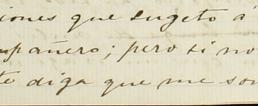 iones que sugeto á
mpañero; pero si no
te diga que me son